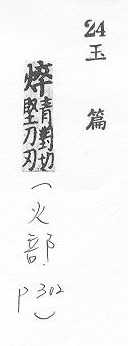 24玉篇
焠
青對切
堅刀刃
(火部 P302)